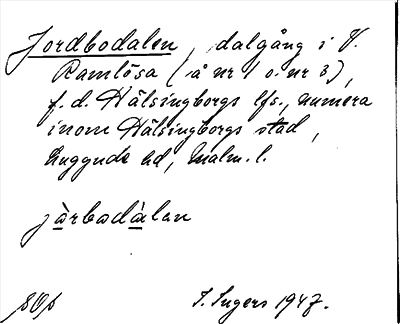 Jordbodalen, dalgång i V.
Ramlösa (å nr 1 o. nr 3),
f.d. Hälsingborgs lfs., numera
inom Hälsingborgs stad,
Luggude hd, Malm. l.
jàrbadàlan
I. Ingers 1947.